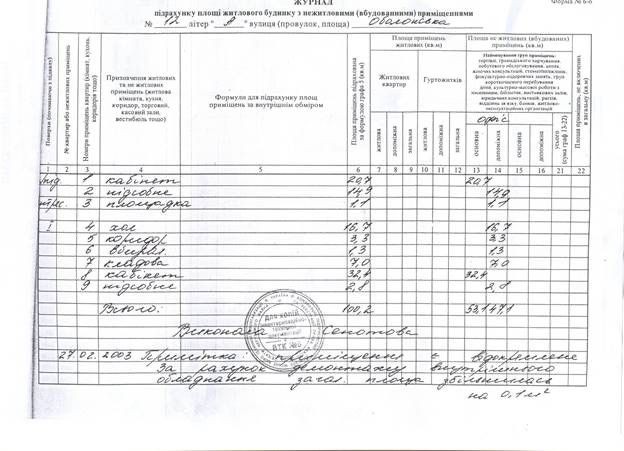 ЖУРНАЛ
Форма № 6-б
підрахунку площі житлового будинку з нежитловими (вбудованими) приміщеннями
№ 12 літер " В " вулиця (провулок, площа) Оболонська
Поверхи (починаючи з підвалу)
№ квартир або нежитлових приміщень
Номери приміщень квартир (кімнат, кухонь, коридорів тощо)
Призначення житлових та не житлових приміщень (житлова кімната, кухня, коридор, торговий, касовий зали, вестибюль тощо)
Формули для підрахунку площ приміщень за внутрішнім обміром
Площа приміщень підрахована за формулою графа 5 (кв.м)
Площа приміщень житлових (кв.м)
Житлових квартир
Гуртожитків
житлова допоміжна загальна житлова допоміжна загальна
Площа не житлових (вбудованих) приміщень (кв.м)
офіс
основна допоміжна основна допоміжна основна допоміжна основна допоміжна усього (сума граф 13-22)
Площа приміщень, не включених в загальну (кв. м)
1 2 3 4 5 6 7 8 9 10 11 12 13 14 15 16 17 18 19 20 21 22
підв. 1 кабінет 20,7 20,7
2 підсобне 14,9 14,9
3 площадка 1,1 1,1
I 4 хол 16,7 16,7
5 коридор 3,3 3,3
6 вбирал. 1,3 1,3
7 кладова 7,0 7,0
8 кабінет 32,4 32,4
9 підсобне 2,8 2,8
Всього: 100,2 53,1 47,1
Виконала
Для копій
БТК №6
27.02.2003 Примітка: приміщення є відокремлене
За рахунок демонтажу внутрішнього
обладнання загал. площа збільшилась
на 0,1 м²